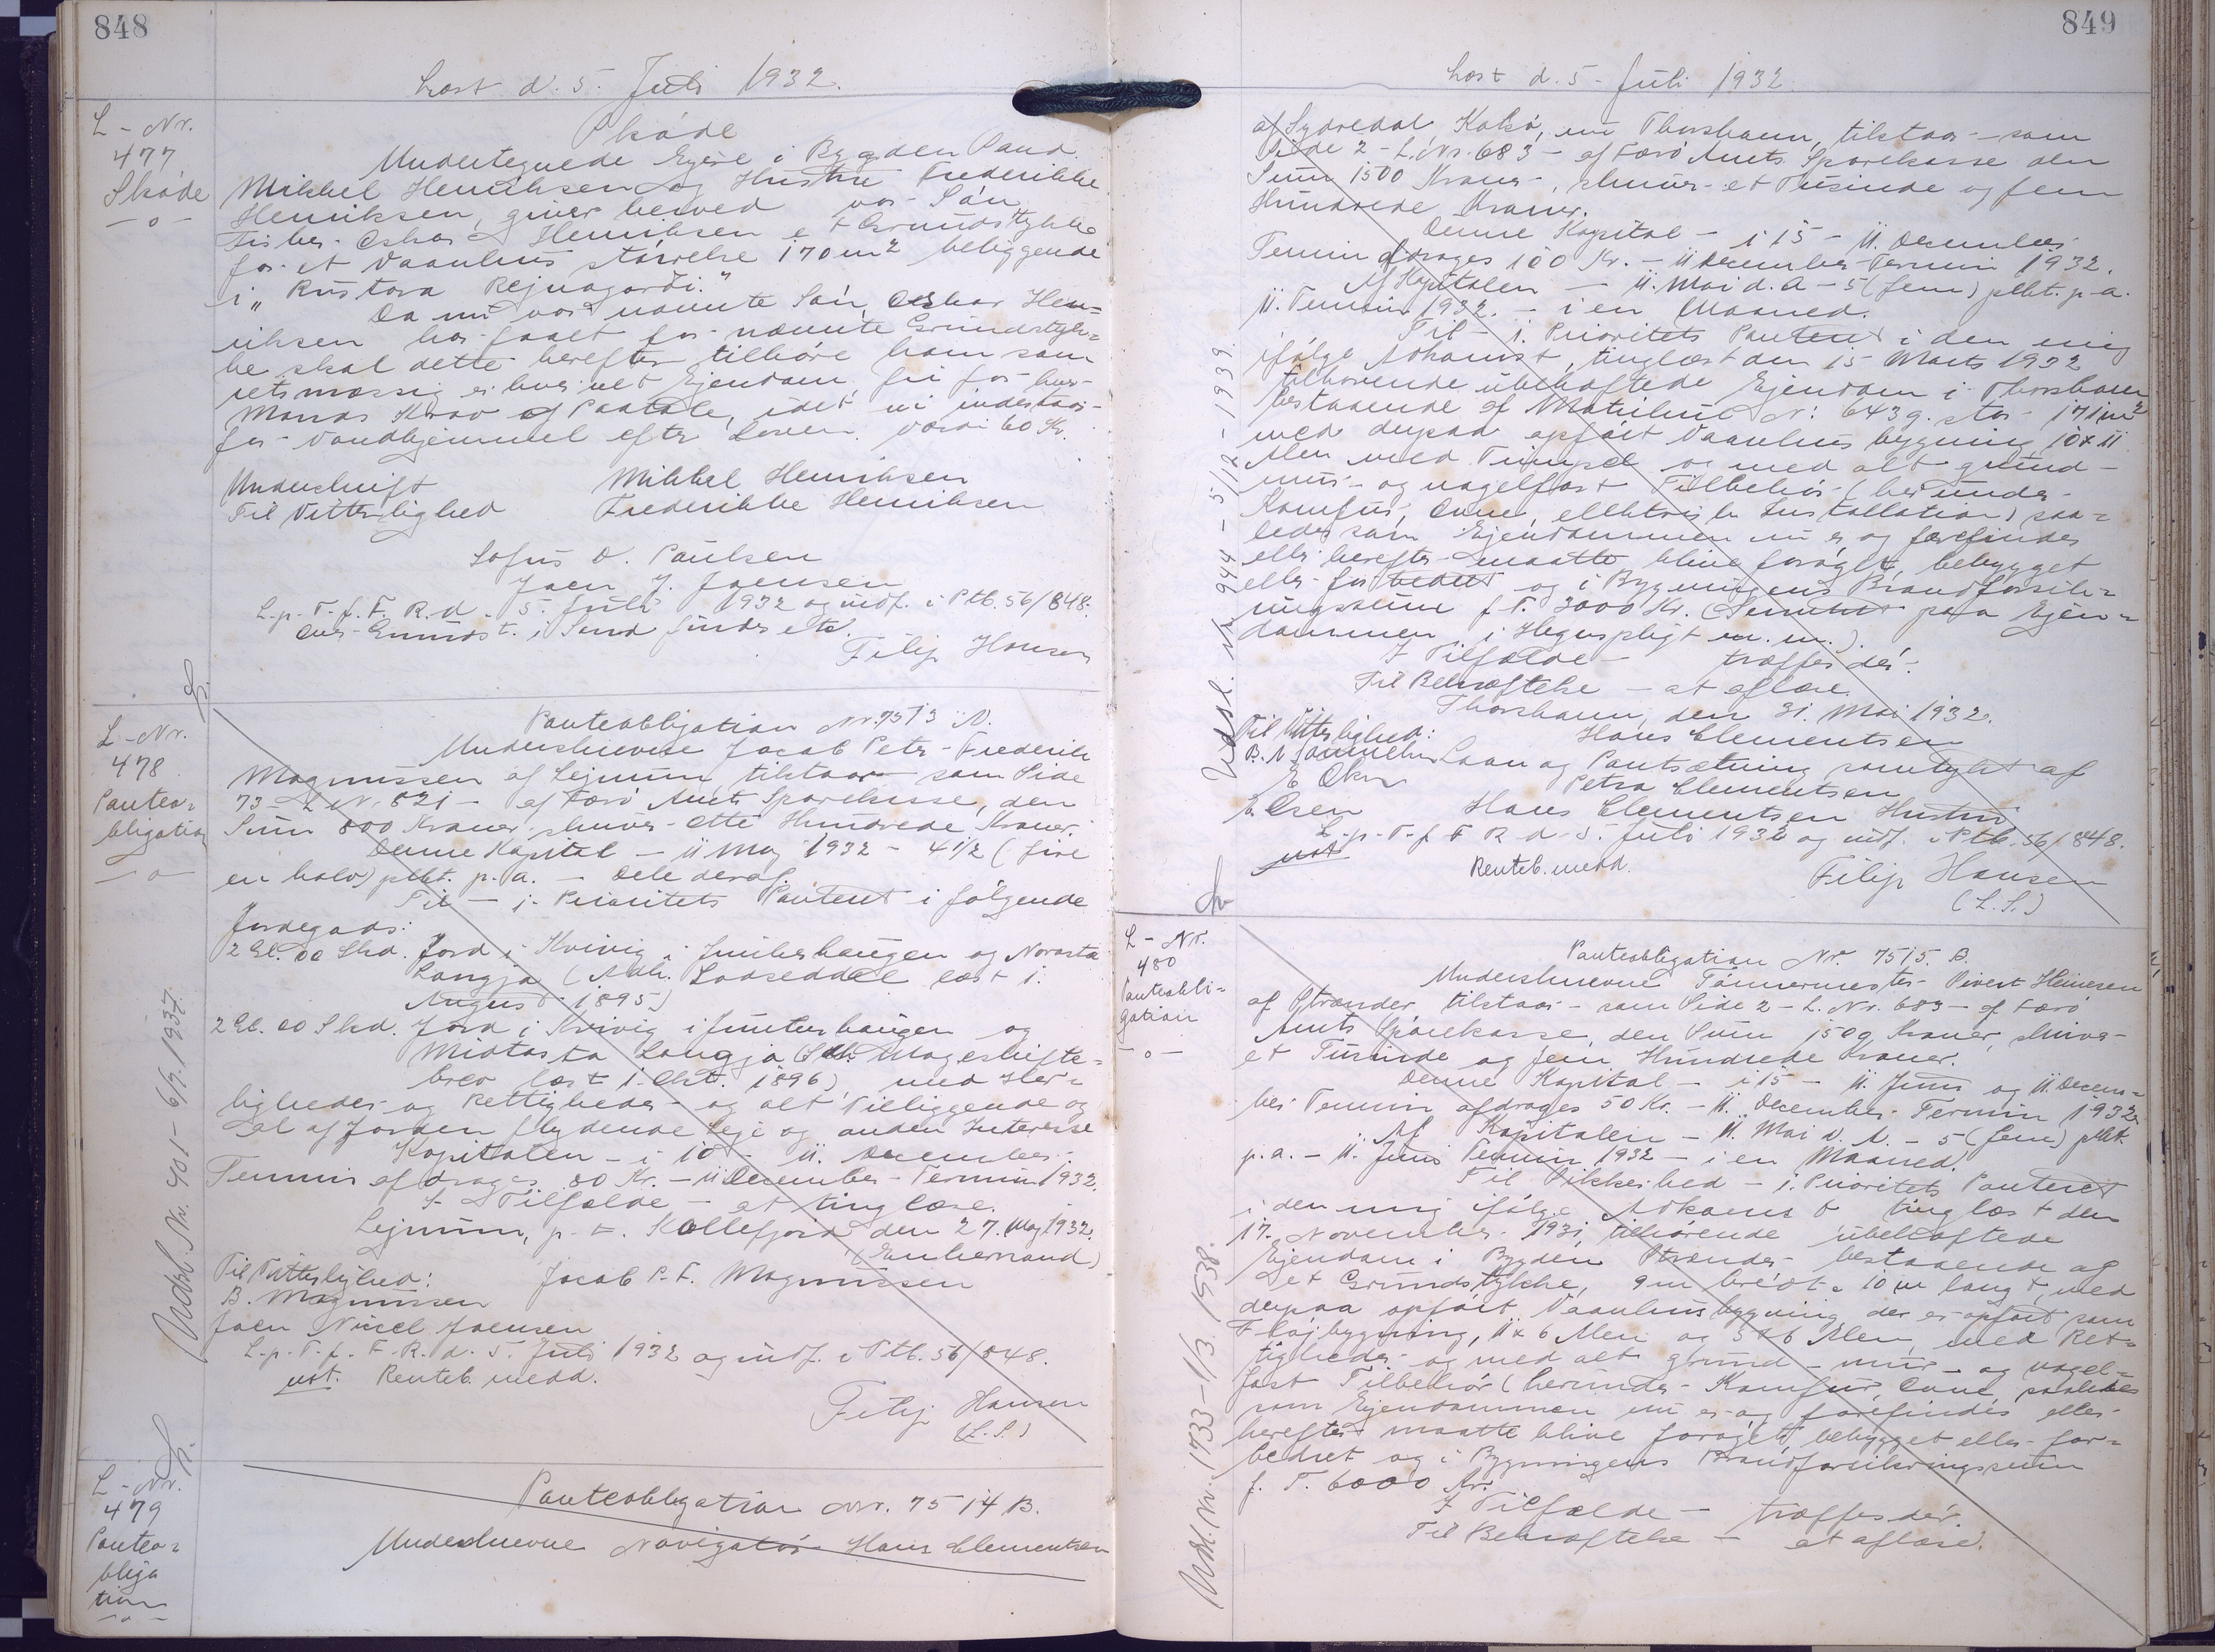 848
Læst d. 5. Juli 1932.
L-Nr.
477
Skøde
—o—
Skøde
Undertegnede Ejere i Bygden Sand
Mikkel Henriksen og Hustru Frederikke
Henriksen, giver herved vor Søn,
Fisker Oskar Henriksen et Grundstykke
for et Vaanhus størrelse 170 m² beliggende
i „Rustora Rejnagørdi."
Da nu vor nævnte Søn, Oskar Hen=
riksen har faaet for nævnte Grundstyk=
ke skal dette herefter tilhøre ham som
retmæssig erhvervet Ejendom, fri for hver
Mands Krav og Paatale, idet vi indestaar
for Vandhjemmel efter Loven. Værdi 60 Kr.
Underskrift Mikkel Henriksen
Til Vitterlighed Frederikke Henriksen
Sofus D. Paulsen
Joen J. Joensen
L.p.T.f.F.R.d. 5. Juli 1932 og indf. i Ptb. 56/848.
Ever Grundst. i Sand findes etc.
Filip Hansen
L-Nr.
478
Panteo=
bligation
—o—
Vedsl. Nr. 401 - 6/7. 1937.
Panteobligation Nr. 7513 A.
Underskrevne Jacob Peter Frederik
Magnussen af Lejnum, tilstaar — som Side
73 - L.Nr. 821 - af Færø Amts Sparekasse, den
Sum 800 Kroner, skriver Otte Hundrede Kroner.
Denne Kapital — 11 Maj 1932 - 4 1/2 (fire
en halv) pCt. p.a. — Dele deraf.
Til — 1. Prioritets Panteret i følgende
Jordegods:
2 Gl. 00 Skd. Jord i Kvivig i Junkerhaugen og Norasta
Langja (Adk. Lodseddel læst 1.
August 1895)
2 Gl. 00 Skd. Jord i Kvivig i Junkerhaugen og
Midtasta Langja (Adk. Mageskifte=
brev læst 1. Okt. 1896) med Her=
ligheder og Rettigheder og alt Tilliggende og
al af Jorden flydende Leje og anden Interesse
Kapitalen — i 10 - 11. December
Termin afdrages 80 Kr. — 11 December Termin 1932.
I Tilfælde — at tinglæse.
Lejnum, p.t. Kollefjord den 27. Maj 1932.
(Enkemand)
Til Vitterlighed: Jacob P.F. Magnussen
B. Magnussen
Joen Niclel Joensen
L.p.T.f.F.R.d. 5. Juli 1932 og indf. i Ptb. 56/848.
not. Renteb. medd.
Filip Hansen
(L.S.)
L-Nr.
479
Panteo=
bliga
tion
—o—
Panteobligation Nr. 7514 B.
Underskrevne Navigatør Hans Clementsen
849
Læst d. 5. Juli 1932.
af Sydredal, Kalsø, nu Thorshavn, tilstaar — som
Side 2 - L.Nr. 683 - af Færø Amts Sparekasse den
Sum 1500 Kroner, skriver et Tusinde og fem
Hundrede Kroner.
Denne Kapital — i 15 - 11. December
Termin afdrages 100 Kr. — 11 December Termin 1932.
Af Kapitalen — 11. Mai d.A. - 5 (fem) pCt. p.a.
11. Termin 1932. — i en Maaned.
Til — 1. Prioritets Panteret i den mig
ifølge Adkomst, tinglæst den 15 Marts 1932
tilhørende ubehæftede Ejendom i Thorshavn
bestaaende af Matrikul Nr: 643g. stor 171 m²
med derpaa opført Vaanhusbygning 10 x 11
Alen med Tilspel og med alt grund-
mur- og nagelfast Tilbehør (herunder
Komfur, Ovne, elektriske Installation) saa=
ledes som Ejendommen nu er og forefindes
eller herefter maatte blive forøget, bebygget
eller forbedret og i Bygningens Brandforsik=
ringssum f.T. 3000 Kr. (Servitut paa Ejen=
dommen, i Hegnspligt m.m.)
I Tilfælde — træffes dér.
Til Bekræftelse — at aflæse.
Thorshavn, den 31. Mai 1932.
Til Vitterlighed: Hans Clementsen
Laan og Pantsætning samtykt af
Petra Clementsen
Hans Clementsen Hustru
L.p.T.f.F.R.d. 5. Juli 1932 og indf. i Ptb. 56/848.
not Renteb. medd.
Filip Hansen
(L.S.)
Vedsl. Nr. 944 - 5/12 - 1939.
L-Nr.
480
Panteobli=
gation
—o—
Vedsl. Nr. 1733 - 1/3. 1938.
Panteobligation Nr. 7515. B.
Underskrevne Tømmermester Sivert Heinesen
af Strænder, tilstaar — som Side 2 - L.Nr. 683 - af Færø
Amts Sparekasse, den Sum 1500 Kroner, skriver
et Tusinde og fem Hundrede Kroner.
Denne Kapital — i 15 - 11. Juni og 11. Decem=
ber Termin afdrages 50 Kr. — 11. December Termin 1932
Af Kapitalen — 11. Mai d.A. - 5 (fem) pCt.
p.a. — 11. Juni Termin 1932 — i en Maaned.
Til Sikkerhed — 1. Prioritets Panteret
i den mig ifølge Adkomst tinglæst den
17. November 1931, tilhørende ubehæftede
Ejendom i Bygden Strænder bestaaende af
et Grundstykke, 9 m bredt, 10 m langt, med
derpaa opført Vaanhusbygning der er opført som
Fløjbygning, 11 x 6 Alen og 5 x 6 Alen, med Ret=
tigheder og med alt grund- mur- og nagel=
fast Tilbehør (herunder Komfur, Ovne, saaledes
som Ejendommen nu er og forefindes eller
herefter maatte blive forøget, bebygget eller for=
bedret og i Bygningens Brandforsikringssum
f.T. 6000 Kr.
I Tilfælde — træffes dér.
Til Bekræftelse — at aflæse.